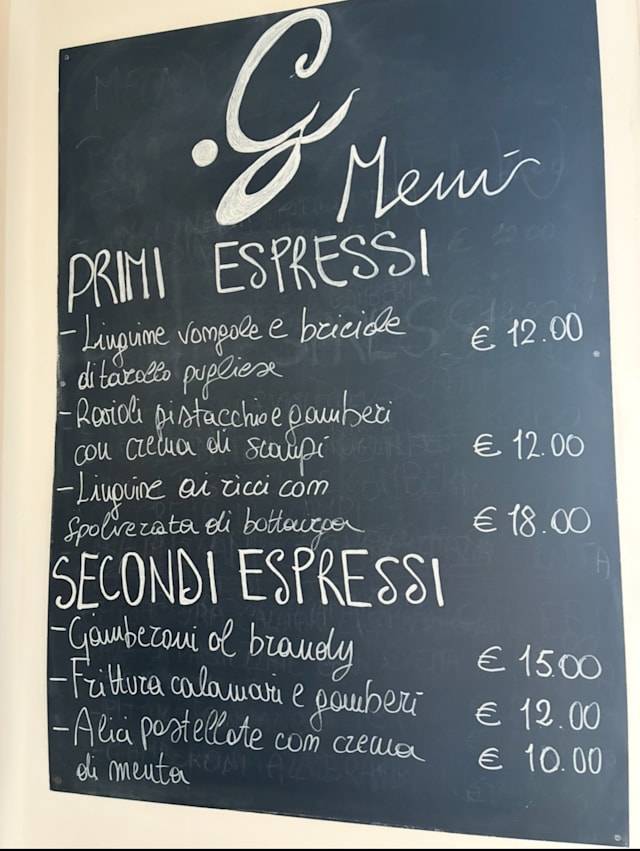 .G Menù
PRIMI ESPRESSI
- Linguine vongole e briciole € 12.00
di tarallo pugliese
- Ravioli pistacchio e gamberi
con crema di scampi € 12.00
- Linguine ai ricci com
spolverata di bottarga € 18.00
SECONDI ESPRESSI
- Gamberoni al brandy € 15.00
- Frittura calamari e gamberi € 12.00
- Alici pastellate com crema € 10.00
di menta